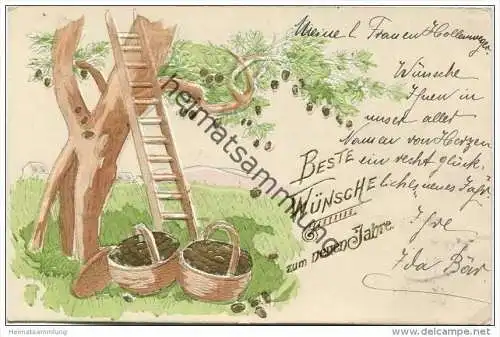 Meine l. Frauen Hollenweger
Wünsche
Ihnen in
unser aller
Namen von Herzen
ein recht glück-
liches neues Jahr.
Ihre
Ida Bär
BESTE
WÜNSCHE
zum neuen Jahre.
heimatsammlung
Heimatsammlung
www.delcampe.net